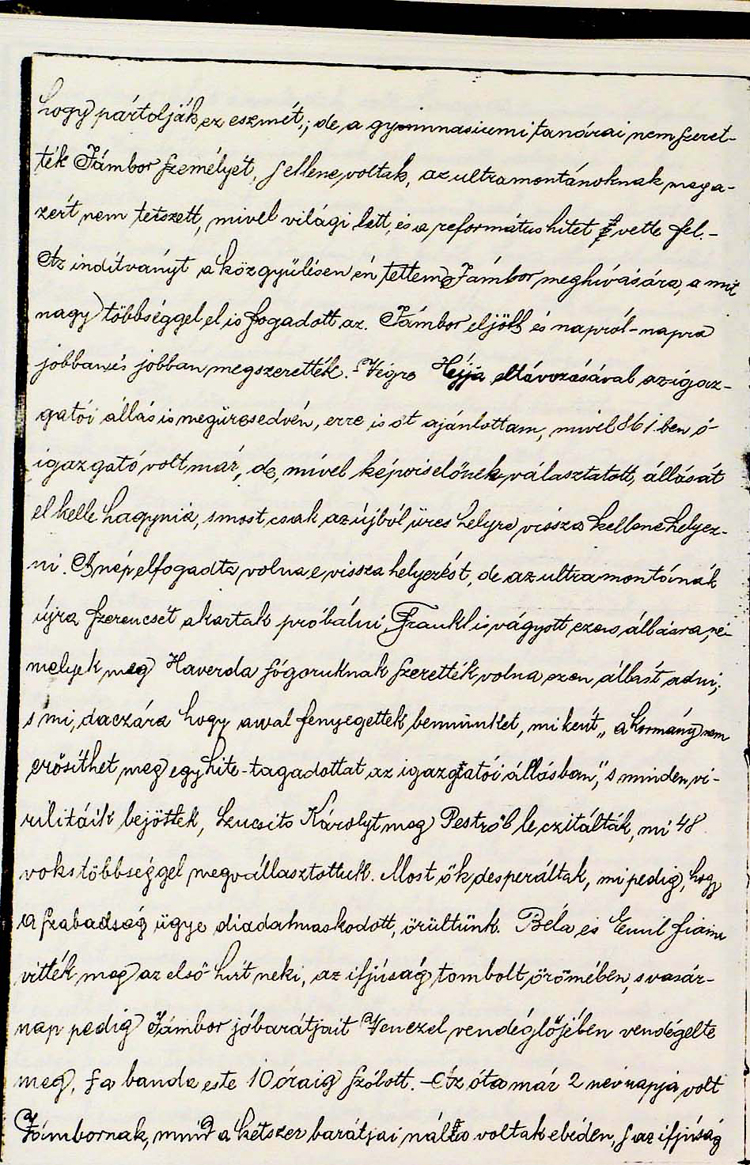 hogy pártolják ez eszmét,; de a gymnnasiumi tanárai nem szeret-
ték Jámbor személyét, s ellene voltak, az ultramontánoknak meg a-
zért nem tetszett, mivel világi lett, és a református hitet vette fel. -
Az inditványt a közgyülésen én tettem Jámbor meghivására, a mit
nagy többséggel el is fogadott az. Jámbor eljött és napról-napra
jobban és jobban megszerették. - Végre Héjja eltávozásával az igaz-
gatói állás is megüresedvén, erre is őt ajánlottam, mivel 861 ben ő
igazgató volt már, de, mivel képviselőnek választatott, állását
el kelle hagynia, s most csak az újból üres helyre vissza kellene helyez-
ni. A nép elfogadta volna e vissza helyezést, de az ultramontánok
újra szerencsét akartak próbálni Frankl is vágyott ezen állásra, né-
melyek meg Haverda sógoruknak szerették volna ezen állást adni,
s mi, daczára hogy avval fenyegettek bennünket, miként „a kormány nem
erősithet meg egy hite-tagadottat az igazgatói állásban," s minden vi-
rilitáik bejöttek, Lucsits Károlyt meg Pestről le czitálták, mi 48
voks többséggel megválasztottuk. Most ők desperáltak, mi pedig, hogy
a szabadság ügye diadalmaskodott, örültünk. Béla és Emil fiaim
vitték meg az első hirt neki, az ifjúság tombolt örömében, s vasár-
nap pedig Jámbor jóbarátjait Venczel vendéglőjében vendégelte
meg, s a banda este 10 óraig szólott. - Az óta már 2 névnapja volt
Jámbornak, mind a kétszer barátjai nála voltak ebéden, s az ifjúság